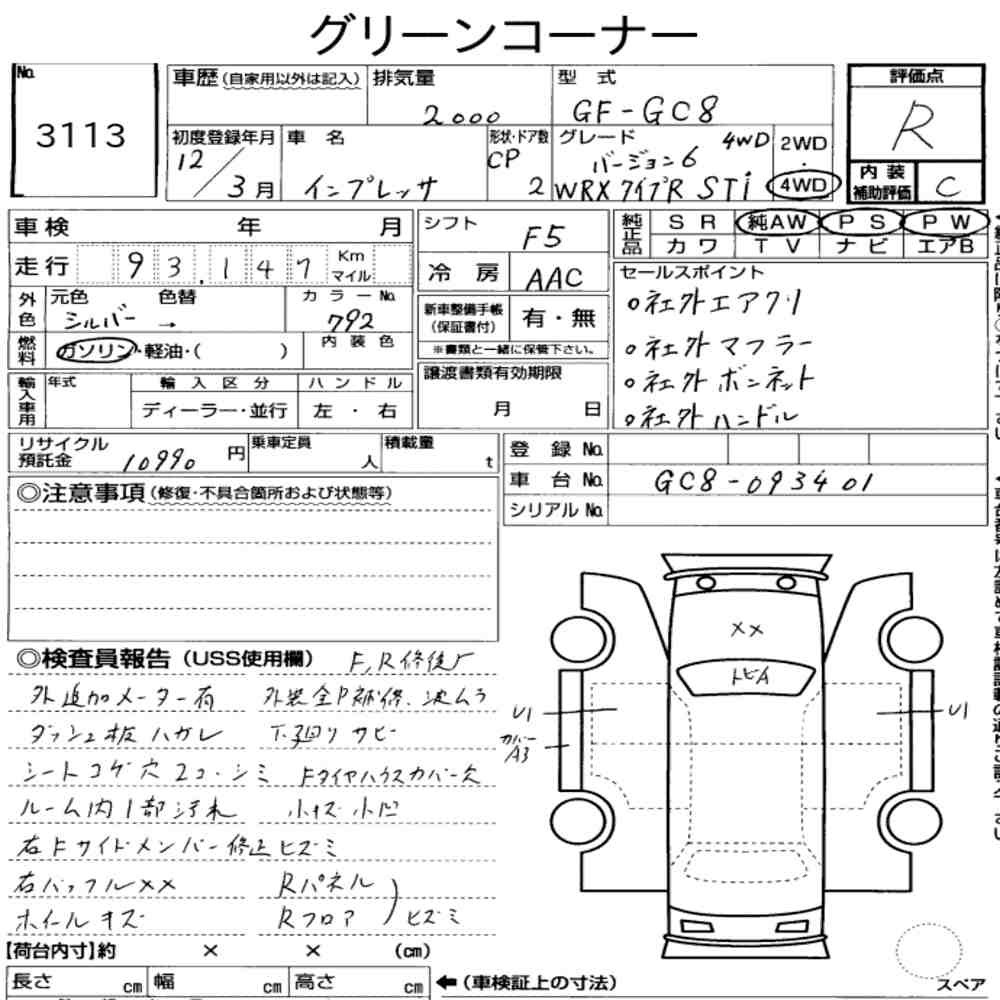 グリーンコーナー
No.
3113
車歴（自家用以外は記入）
排気量
2000
型式
GF-GC8
評価点
R
初度登録年月
12/3月
車名
インプレッサ
形状・ドア数
CP
2
グレード
4WD
バージョン6
WRX タイプR STi
2WD
・
4WD
内装
補助評価
C
車検 年 月
シフト
F5
純正品
SR 純AW PS PW
カワ TV ナビ エアB
走行 93,147 Km マイル
冷房 AAC
セールスポイント
○社外エアクリ
○社外マフラー
○社外ボンネット
○社外ハンドル
外色
元色 色替
シルバー →
カラーNo.
792
新車整備手帳
（保証書付）
有・無
※書類と一緒に保管下さい。
燃料
ガソリン・軽油・（ ）
内装色
輸入車用
年式
輸入区分
ディーラー・並行
ハンドル
左・右
譲渡書類有効期限
月 日
リサイクル
預託金 10990 円
乗車定員
人
積載量
t
登録No.
車台No. GC8-093401
シリアルNo.
◎注意事項（修復・不具合箇所および状態等）
◎検査員報告（USS使用欄） F,R修復歴
外追加メーター有 外装全P補修、波ムラ
ダッシュ板ハガレ 下廻りサビ
シートコゲ穴2コ・シミ FタイヤハウスカバーX欠
ルーム内1部汚れ 小キズ小凹
右Fサイドメンバー修正ヒズミ
右バッフルXX Rパネル
ホイールキズ Rフロア ）ヒズミ
XX
トビA
U1
U1
カバー
A3
【荷台内寸】約 × × （cm）
長さ cm 幅 cm 高さ cm
←（車検証上の寸法）
スペア